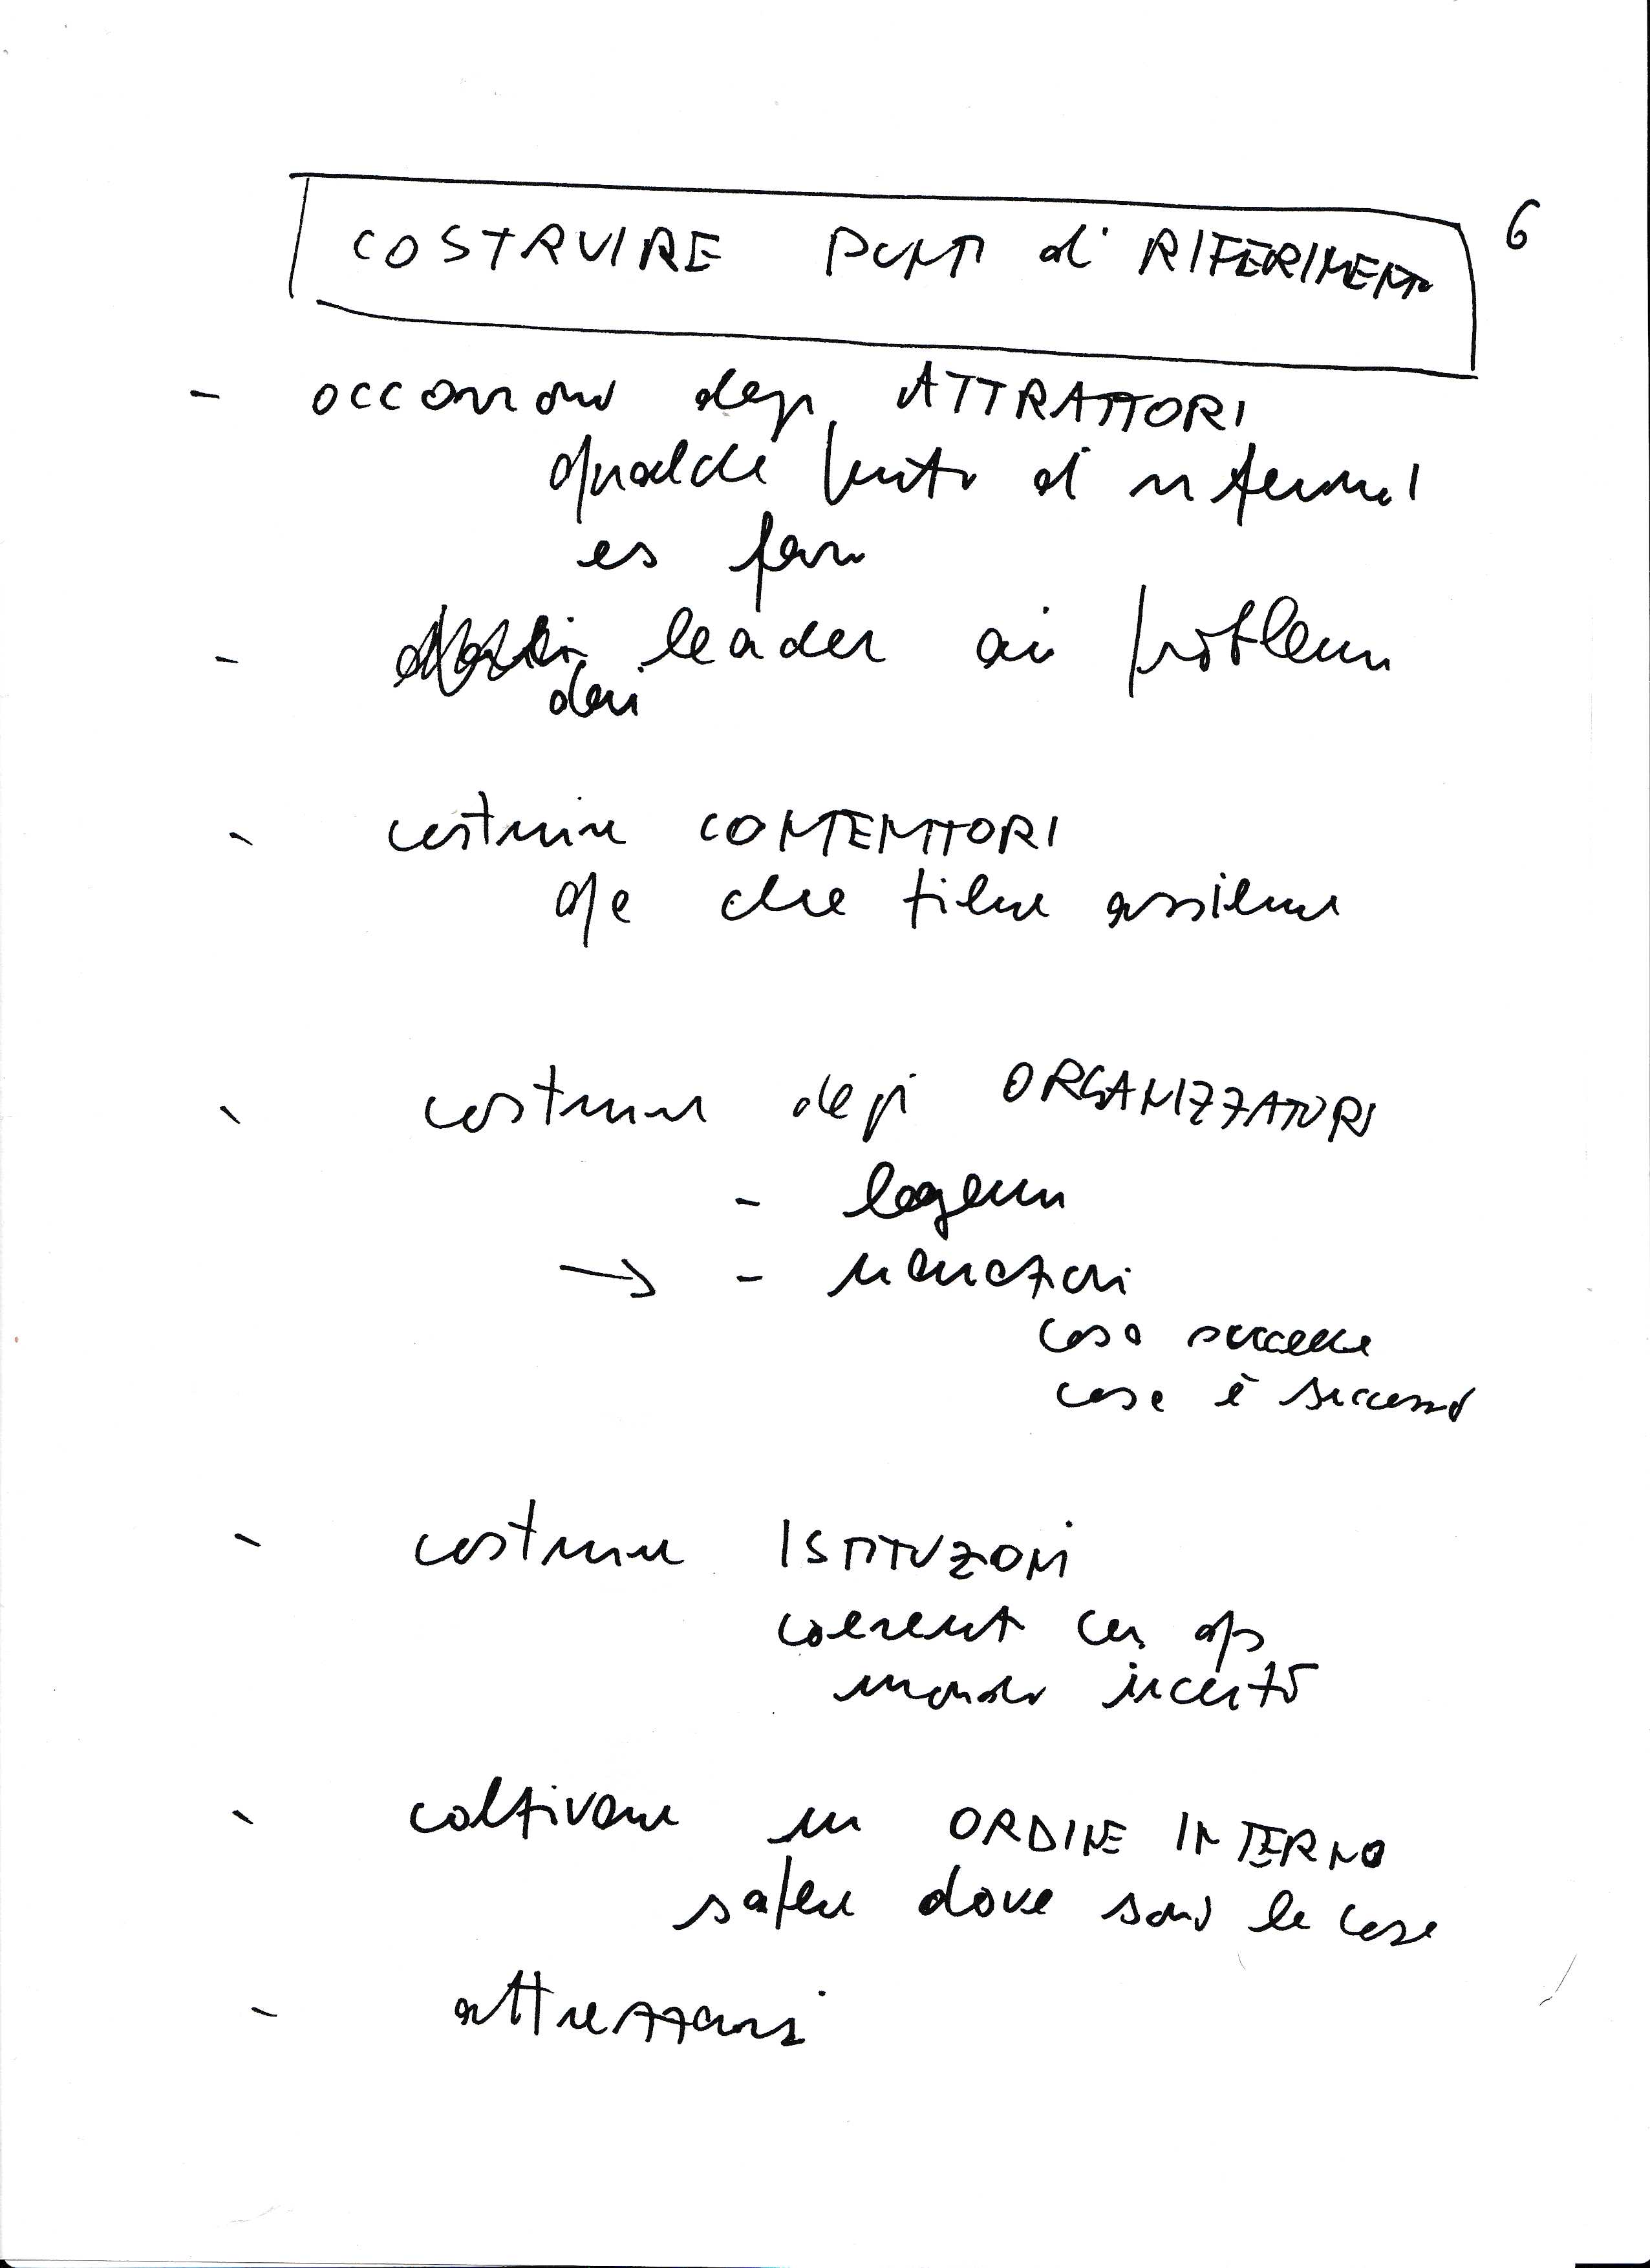 6
COSTRUIRE PUNTI di RIFERIMENTO
- occorrono degli ATTRATTORI
qualche punto di riferim.
es faro
- dai leader ai problemi
- costruire CONTENITORI
che tiene assieme
- costruire degli ORGANIZZATORI
- legami
→ - narrazioni
cosa succede
cosa è successo
- costruire ISTITUZIONI
coerenti con
mondo incerto
- coltivare un ORDINE INTERNO
sapere dove sono le cose
- attrezzarsi